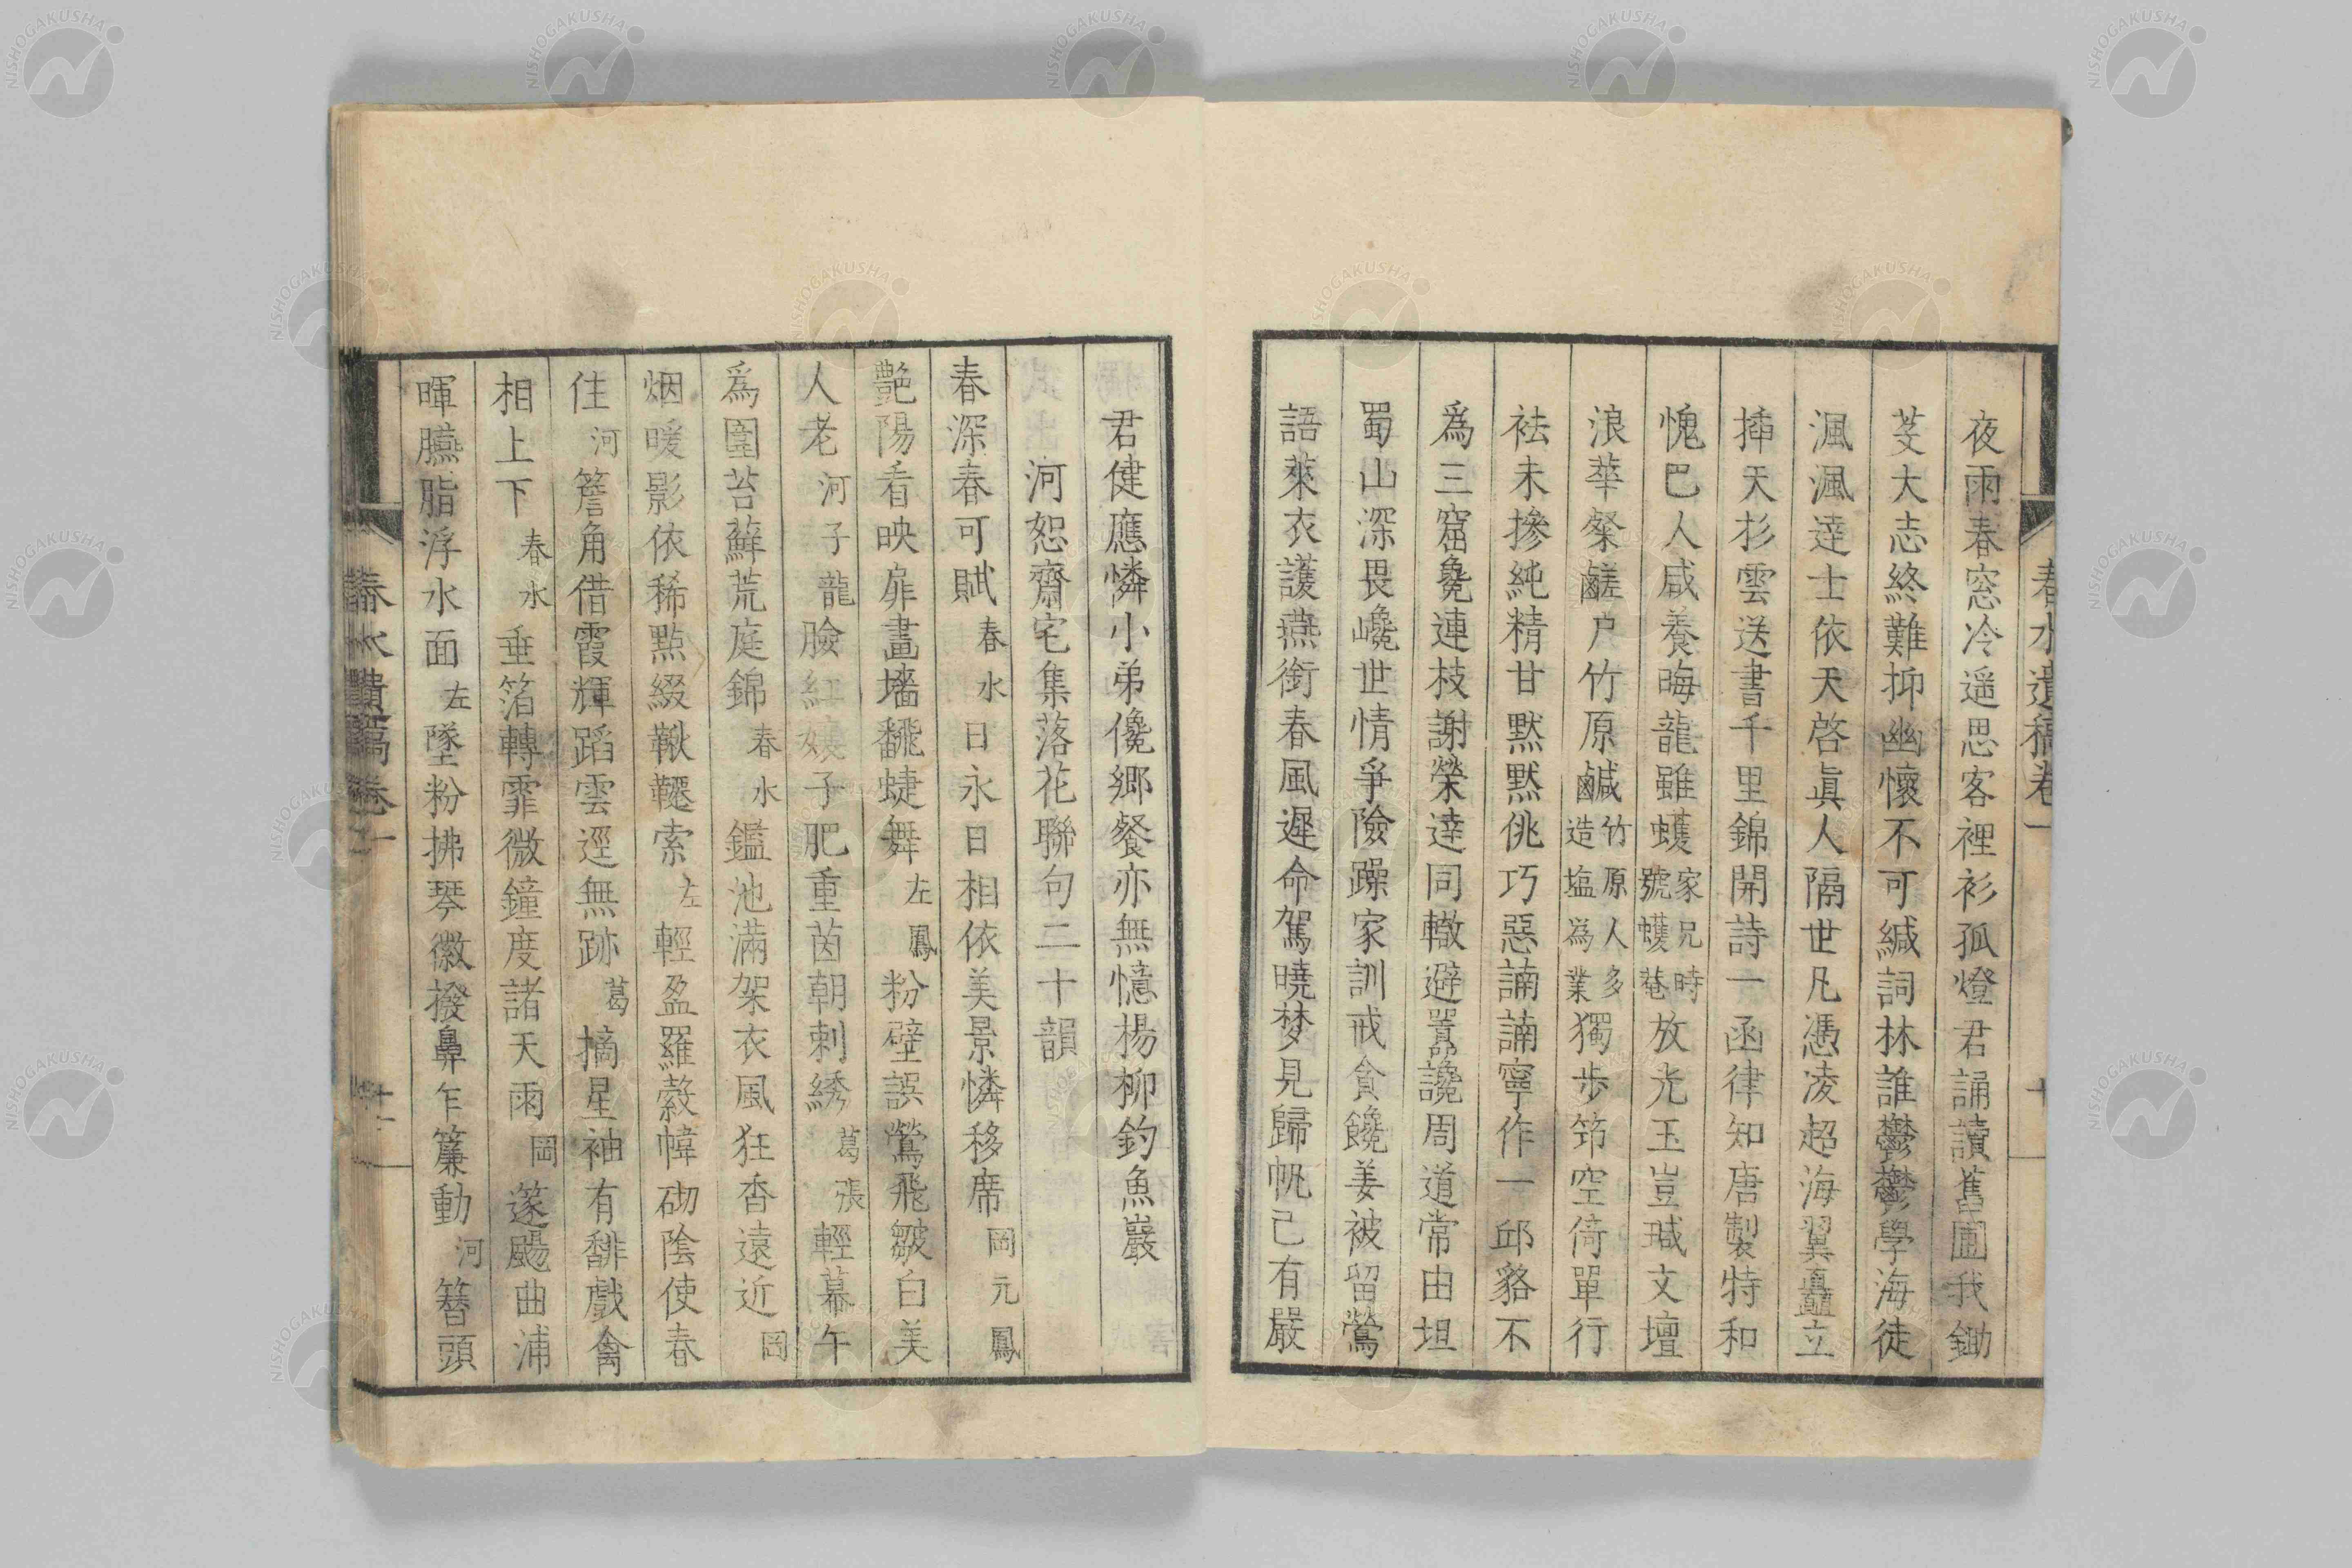 春水遺稿卷一
十
夜雨春窓冷遥思客裡衫孤燈君誦讀舊圃我鋤
芟大志終難抑幽懷不可緘詞林誰鬱鬱學海徒
渢渢逹士依天啓眞人隔世凡憑凌超海翼矗立
挿天杉雲送書千里錦開詩一函律知唐製特和
愧巴人咸養晦龍雖蠖家兄時號蠖菴放光玉豈瑊文壇
浪華粲鹺户竹原鹹竹原人多造塩爲業獨歩笻空倚單行
袪未摻純精甘黙黙佻巧惡諵諵寧作一邱貉不
為三窟毚連枝謝榮逹同轍避嚚讒周道常由坦
蜀山深畏巉世情爭險躁家訓戒貪饞姜被留鶯
語萊衣護燕銜春風遲命駕曉梦見歸帆已有嚴
君健應憐小弟儳郷餐亦無憶楊柳釣魚巖
河恕齋宅集落花聯句二十韻
春深春可賦春水日永日相依美景憐移席岡元鳳
艶陽看映扉畫墻翻蜨舞左鳳粉壁誤鶯飛皺白美
人老河子龍臉紅孃子肥重茵朝刺綉葛張輕幕午
爲圍苔蘚荒庭錦春水鑑池滿架衣風狂香遠近岡
烟暖影依稀㸃綴鞦韆索左輕盈羅縠幃砌陰使春
住河簷角借霞輝蹈雲逕無跡葛摘星袖有馡戲禽
相上下春水垂箔轉霏微鐘度諸天雨岡篴颺曲浦
暉臙脂浮水面左墜粉拂琴徽撥鼻乍簾動河簪頭
春水遺稿卷一
十一